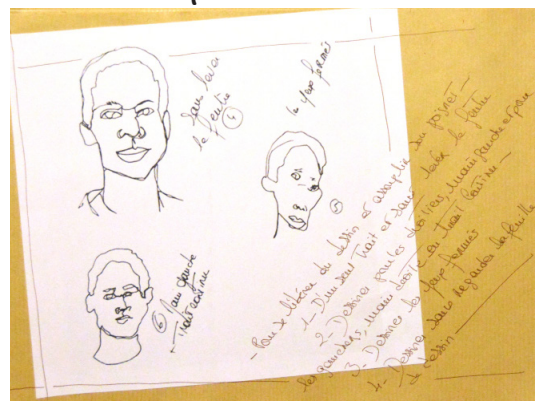 Sans lever
le feutre
4
les yeux fermés
5
6 Main gauche
Trait continu
- Pour se libérer du dessin et assouplir son poignet -
1- D'un seul trait et sans lever le feutre
2- Dessiner pour les droitiers, main gauche et pour
les gauchers, main droite au trait continu -
3- Dessiner les yeux fermés
4- Dessiner sans regarder la feuille
de dessin